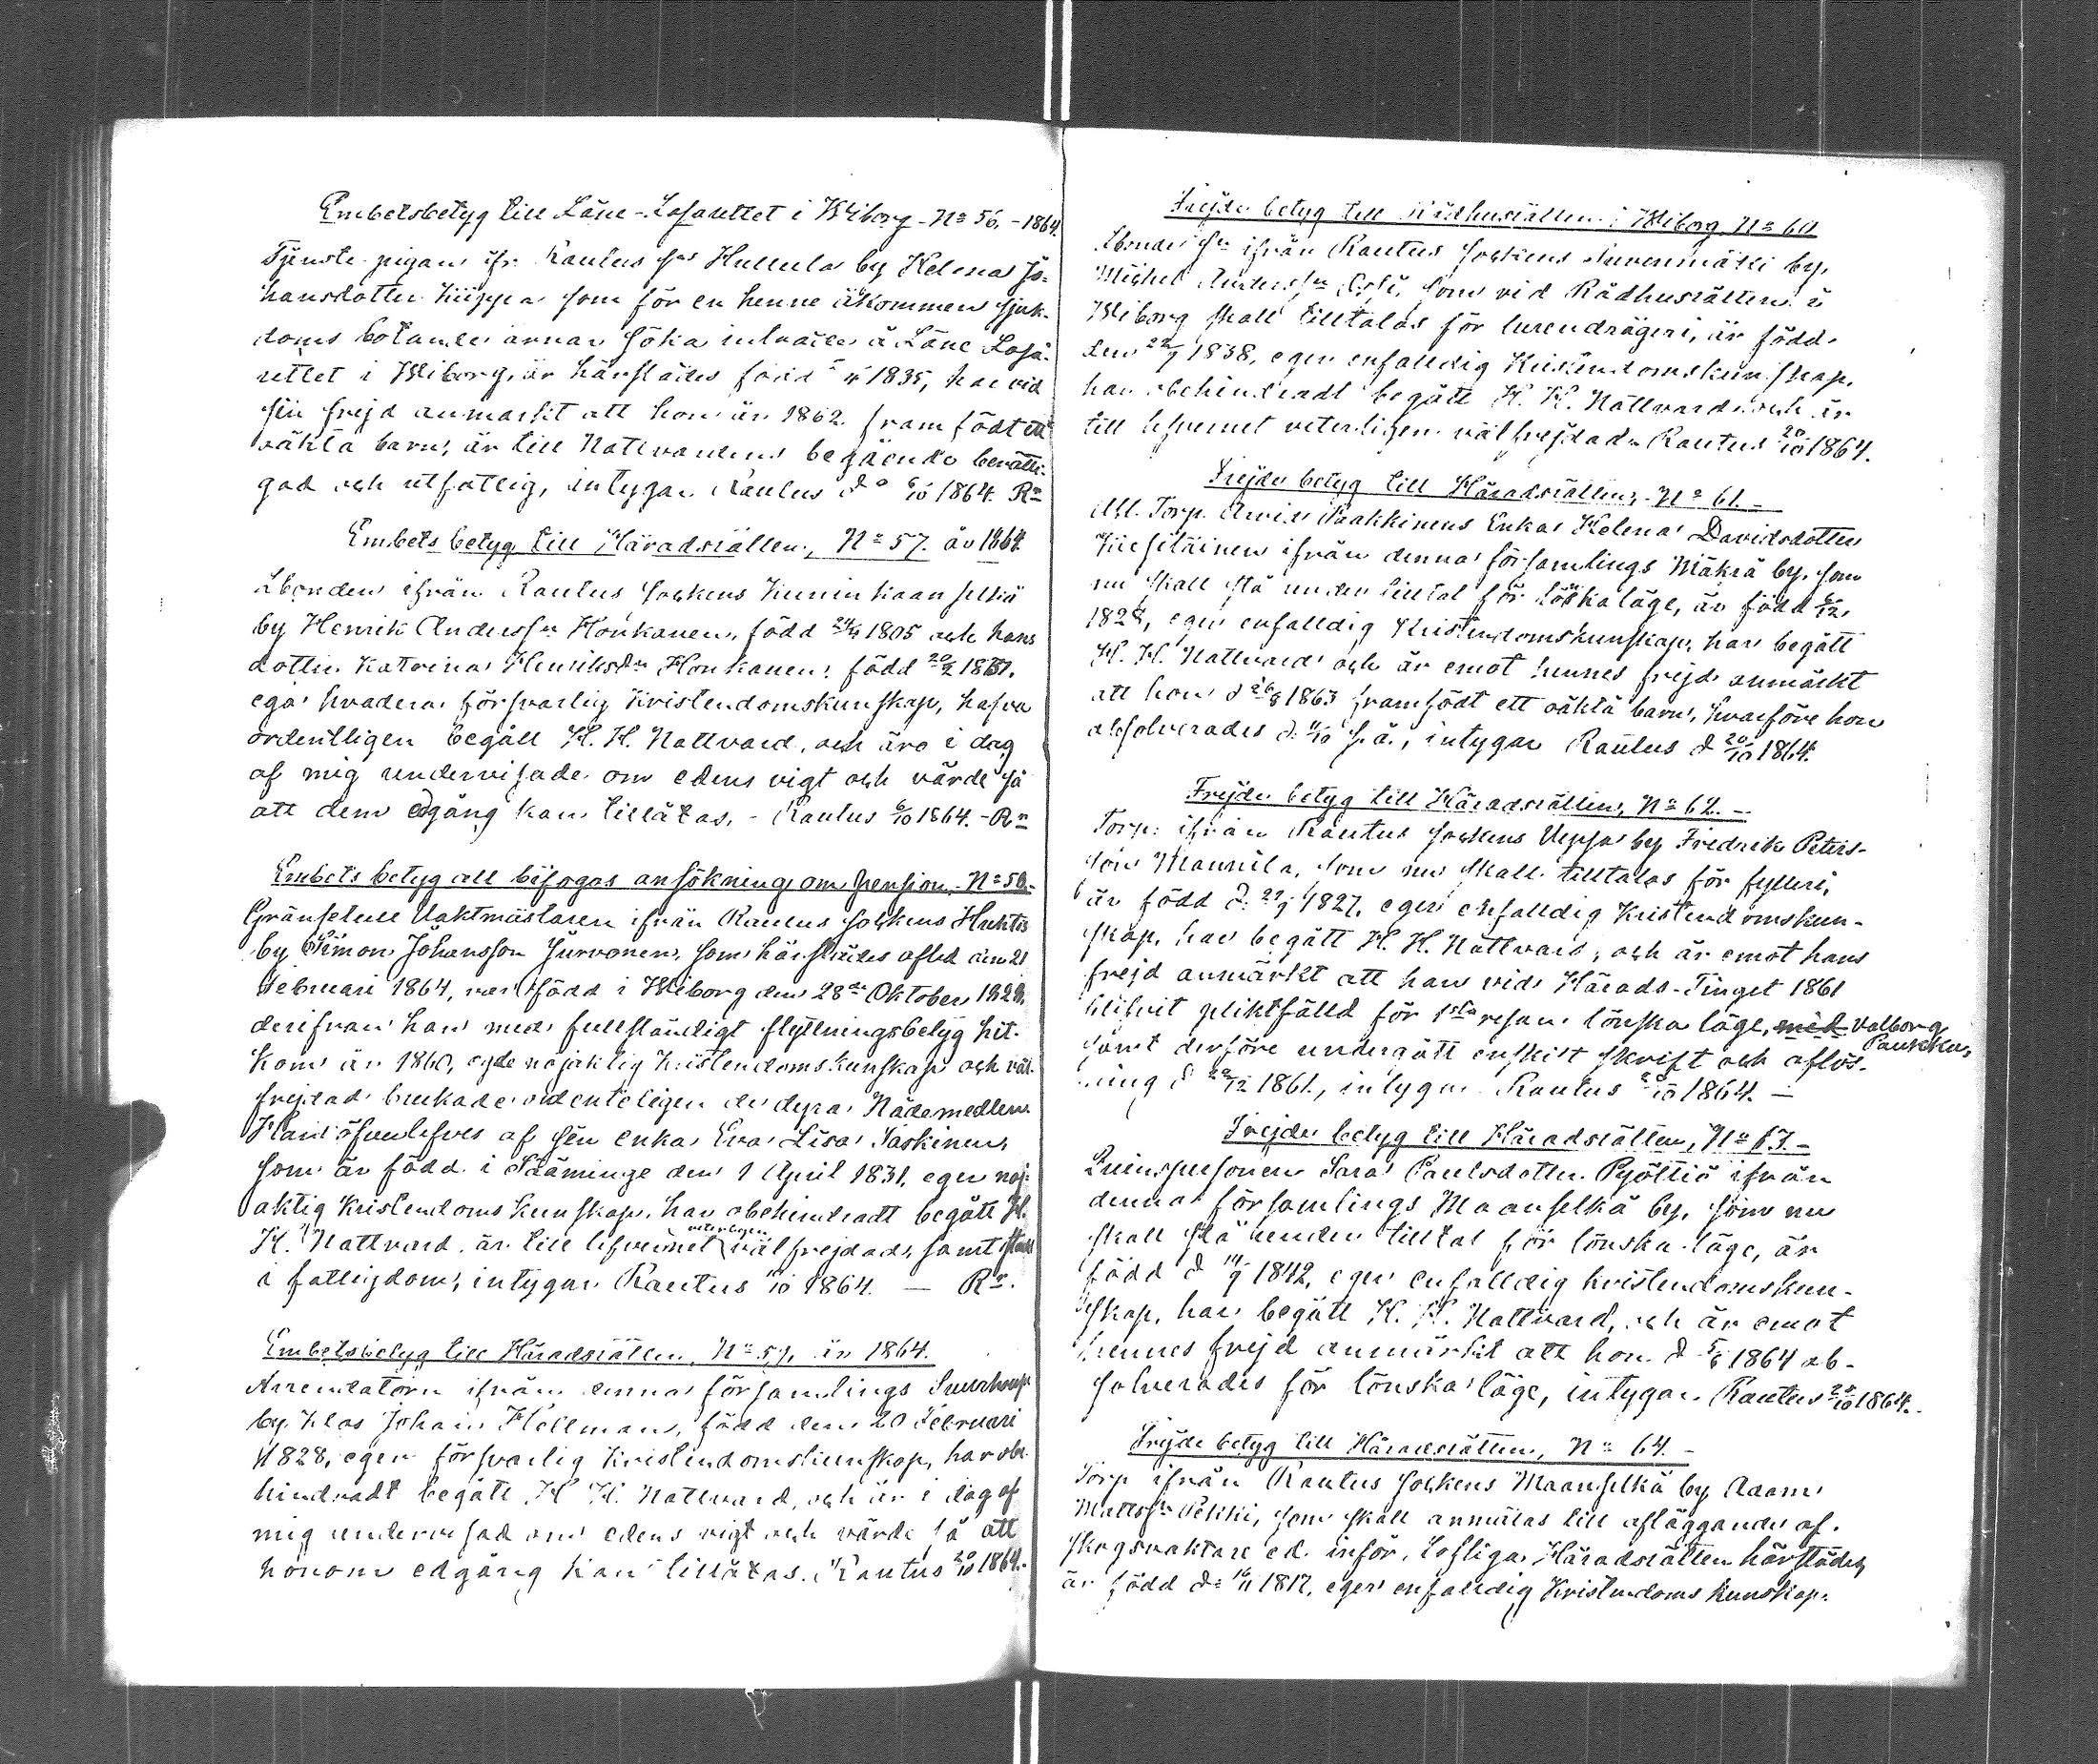 Embetsbetyg till Läne-Lasarettet i Wiborg - No 56. - 1864.
Tjenste pigan ifr. Rautus sns Hullula by Helena Jo-
hansdotter som för en henne åkommen sjuk-
doms botande ärnar söka inträde å Läne Lasa-
rettet i Wiborg, är härstädes född 1835, har vid
sin frejd anmärkt att hon år 1862 framfödt ett
oäkta barn, är till Nattvardens begående berätti-
gad och utfattig, intygar Rautus do 6/10 1864. Rn
Embets betyg till Häradsrätten, No 57. år 1864.
Lbonden ifrån Rautus sockens Kuninkaanselkä
by Henrik Andersn Honkanen, född 24/4 1805 och hans
dotter Katrina Henriksdr Honkanen, född 20/2
ega hvardera försvarlig Kristendomskunskap, hafva
ordentligen begått H. H. Nattvard, och äro i dag
af mig undervisade om edens vigt och värde så
att dem edgång kan tillåtas. - Rautus 6/10 1864. - Rn
Embets betyg att bifogas ansökning om pension. No 58.
Gränsetull Vaktmästaren ifrån Rautus sockens Huhtis
by Simon Johansson Jurvonen, som härstädes afled den 21
Februari 1864, var född i Wiborg den 28de Oktober
derifrån han med fullständigt flyttningsbetyg hit-
kom år 1860, egde nöjaktig Kristendomskunskap och väl-
frejdad brukade ordenteligen de dyra Nådemedlen.
Han öfverlefves af sin enka Eva Lisa Taskinen,
som är född i Sääminge den 1 April 1831, eger nöj-
aktig Kristendoms kunskap, har obehindradt begått H.
H. Nattvard, är till lefvernet veterligen välfrejdad, samt stadd
i fattigdom, intygar Rautus 1864. — Rn.
Embetsbetyg till Häradsrätten, No 59. år 1864.
Arrendatorn ifrån denna församlings
by Klas Johan Hellman, född den 20 Februari
1828, eger försvarlig Kristendomskunskap, har obe-
hindradt begått H. H. Nattvard, och är i dag af
mig undervisad om edens vigt och värde så att
honom edgång kan tillåtas. Rautus 20/10 1864.
Frejde betyg till Rådhusrätten i Wiborg No 60
Lbonde sn ifrån Rautus sockens Suvenmäki by,
Michel Anderssn som vid Rådhusrätten i
Wiborg skall tilltalas för lurendrägeri, är född
den 1838, eger enfalldig Kristendomskunskap,
har obehindradt begått H. H. Nattvard och är
till lefvernet veterligen välfrejdad. Rautus 20/10 1864.
Frejde betyg till Häradsrätten, No 61. -
Afl. Torp. Arvid Paakkinens Enka Helena Davidsdotter
ifrån denna församlings Mäkrä by, som
nu skall stå under tilltal för löskaläge, är född
eger enfalldig Kristendomskunskap, har begått
H. H. Nattvard och är emot hennes frejd anmärkt
att hon d 1863 framfödt ett oäkta barn, hvarföre hon
absolverades s. å., intygar Rautus d 20/10 1864.
Frejde betyg till Häradsrätten, No 62. -
Torp. ifrån Rautus sockens Ueppa by Fredrik Peters-
son Mannila, som nu skall tilltalas för fylleri,
är född d. 1827, eger enfalldig Kristendomskun-
skap, har begått H. H. Nattvard, och är emot hans
frejd anmärkt att han vid Härads-Tinget 1861
blifvit pliktfälld för 1sta resan lönska läge, med Valborg Paukku,
samt derföre undergått enskilt skrift och aflös-
ning d 1861, intygar Rautus 20/10 1864. -
Frejde betyg till Häradsrätten, No 63. -
Qvinspersonen Sara Paulsdotter Pyöttiö ifrån
denna församlings Maanselkä by, som nu
skall stå under tilltal för lönska läge, är
född d 1842, eger enfalldig kristendomskun-
skap, har begått H. H. Nattvard, och är emot
hennes frejd anmärkt att hon d 1864 ab-
solverades för lönska läge, intygar Rautus 20/10 1864.
Frejde betyg till Häradsrätten, No 64. -
Torp ifrån Rautus sockens Maanselkä by Adam
Mattssn Pekki, som skall anmälas till afläggande af
skogsvaktare ed inför Lofliga Häradsrätten härstädes,
är född de 1817, eger enfalldig Kristendoms kunskap.